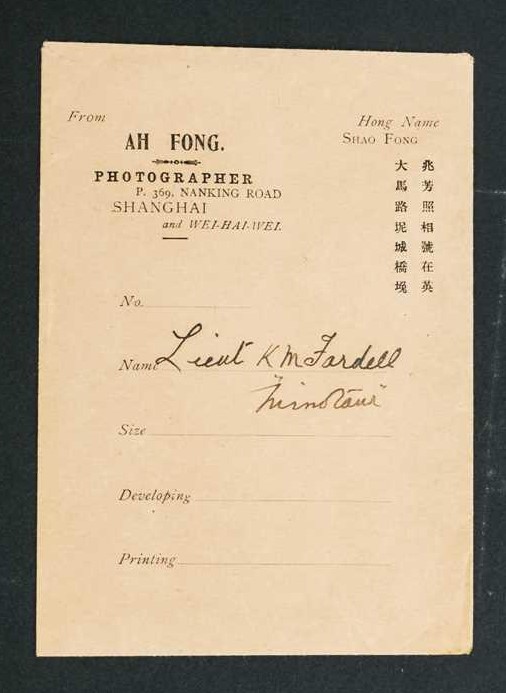 From
AH FONG.
PHOTOGRAPHER
P. 369, NANKING ROAD
SHANGHAI
and WEI-HAI-WEI.
Hong Name
SHAO FONG
兆芳照相號在英
大馬路坭城橋堍
No.
Name Lieut K M Fardell
"Minotaur"
Size
Developing
Printing